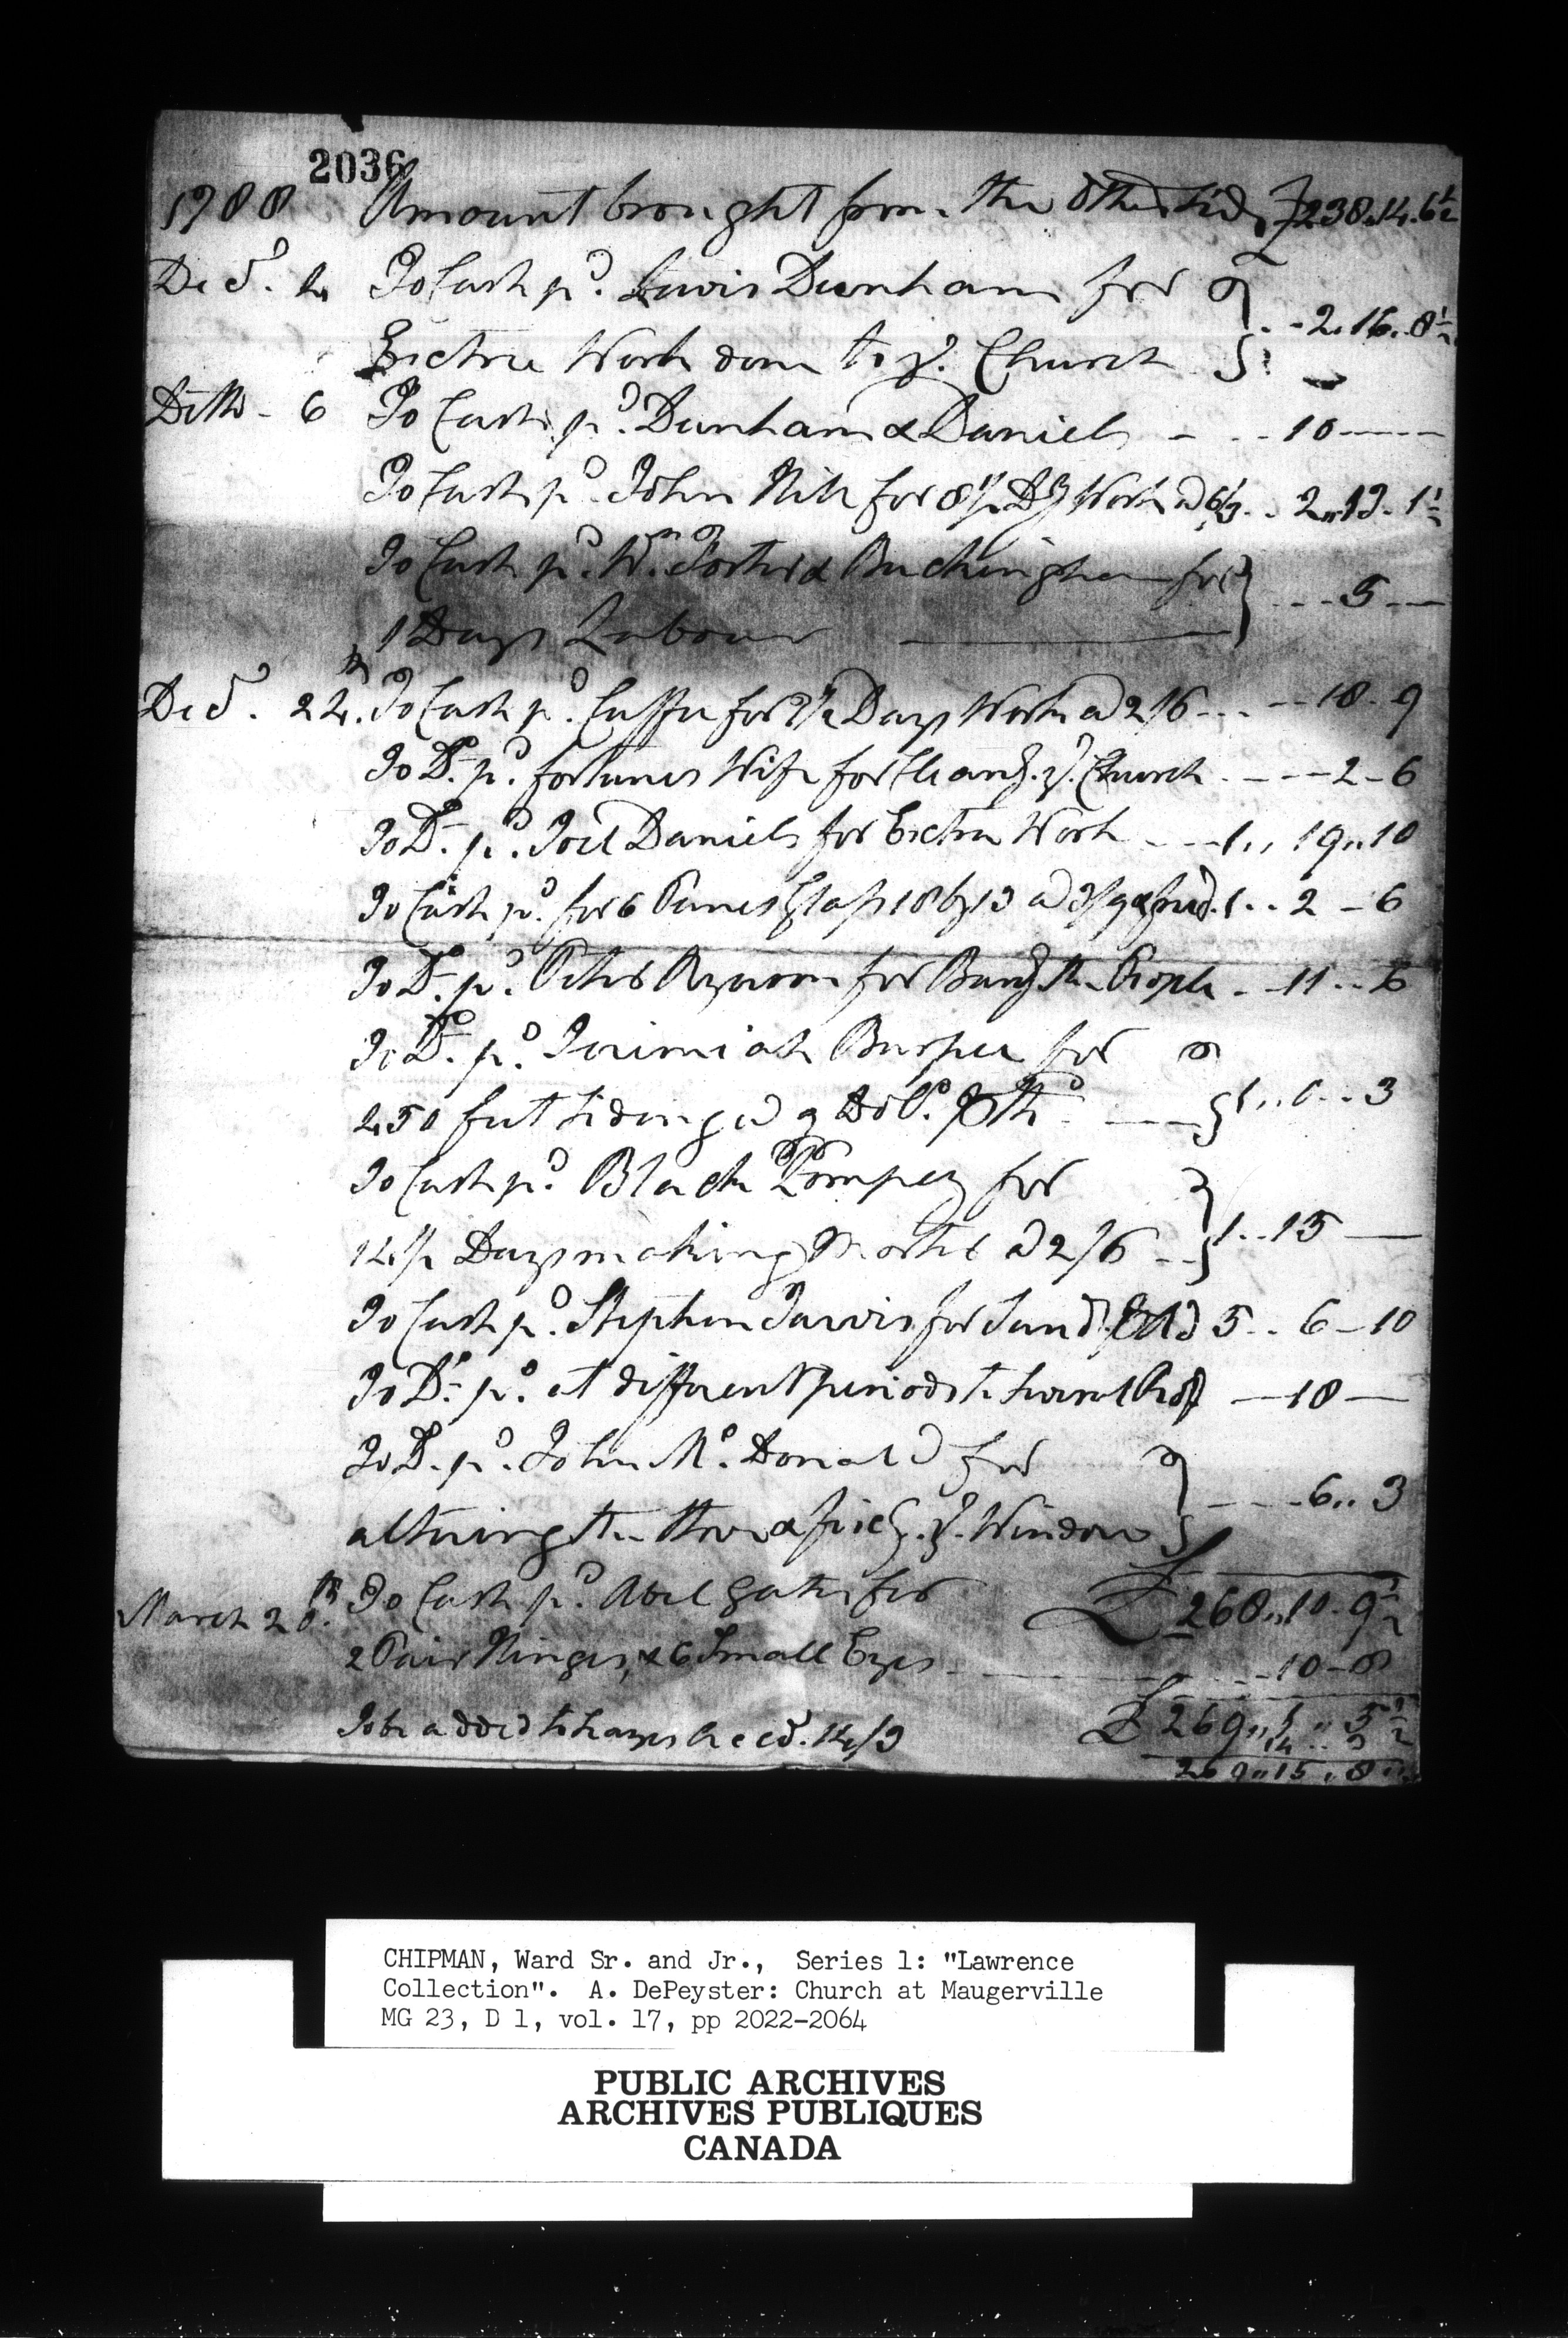 2036
1788 Amount brought from the Other Side £238.14.6½
Decr. 4 To Cash pd. Lewis Dunham for
Extree Work done to ye. Church 2.16.8½
Ditto - 6 To Cash pd. Dunham & Daniels - - 10 -
To Cash pd. John Hill for 8½ Dys Work @ 6/3 - 2,,13.1½
To Cash pd. Wm. Porter & Buckingham for
1 Days Labour - 5 -
Decr. 24th. To Cash pd. Cuffee for 7½ Days Work @ 2/6 - - 18 - 9
To Do. pd. Fortunes Wife for Cleang. ye. Church - - - 2 - 6
To Do. pd. Joel Daniels for Extra Work - - 1,, 19,, 10
To Cash pd. for 6 Panes Glass 18 by 13 @ 3/9 1 - - 2 - 6
To Do. pd. Peter Ryarson for the People - 11 - - 6
To Do. pd. Jerimiah Burpee for
450 feet Siding @ 9 Dolrs. ℔ Thd. 1,, 0 - - 3
To Cash pd. Black Pompey for
14/ Days making Morter @ 2/6 - - 1 - - 15 -
To Cash pd. Stephen Jarvis for Sund. 5 - - 6 - 10
To Do. pd. at different periods to - 18 -
To Do. pd. John Mc. Donald for
altering the & fixg. ye. Window - - - 6,, 3
£ 268,,10 - 9½
March 20th. To Cash pd. Abel Gates for
2 Pair Hinges, & 6 Small Eyes - 10 - 8
£ 269,,1,,5½
To be added to Hayes Accd. 14/3 14 - - 3
269,,15,,8
CHIPMAN, Ward Sr. and Jr., Series 1: "Lawrence
Collection". A. DePeyster: Church at Maugerville
MG 23, D 1, vol. 17, pp 2022-2064
PUBLIC ARCHIVES
ARCHIVES PUBLIQUES
CANADA